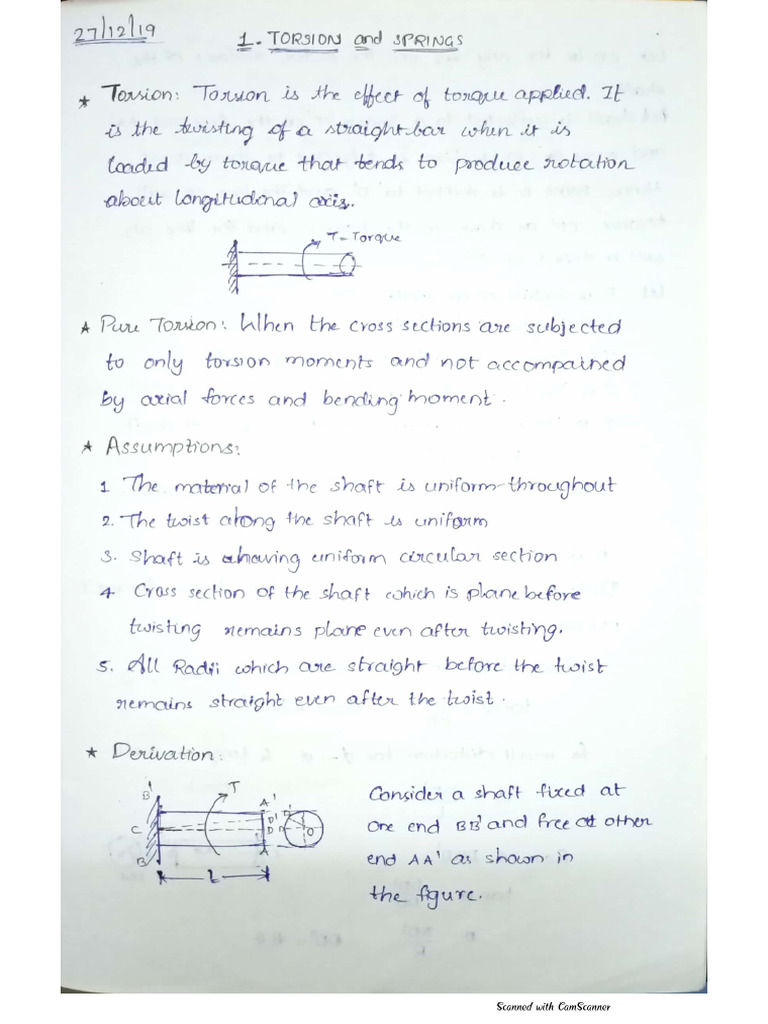 27/12/19
1. TORSION and SPRINGS
★ Torsion: Torsion is the effect of torque applied. It
is the twisting of a straight bar when it is
loaded by torque that tends to produce rotation
about longitudinal axis.
T - Torque
★ Pure Torsion: When the cross sections are subjected
to only torsion moments and not accompained
by axial forces and bending moment.
★ Assumptions:
1. The material of the shaft is uniform throughout
2. The twist along the shaft is uniform
3. Shaft is having uniform circular section
4. Cross section of the shaft which is plane before
twisting remains plane even after twisting.
5. All Radii which are straight before the twist
remains straight even after the twist.
★ Derivation:
B' T A'
C D' D D' D O
B A
L
Consider a shaft fixed at
one end BB' and free at other
end AA' as shown in
the figure.
Scanned with CamScanner